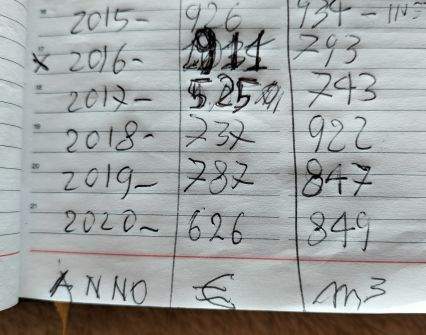 2015- 926 934 -
x 2016- 793
2017- 525 743
2018- 737 922
2019- 787 847
2020- 626 849
ANNO € m3